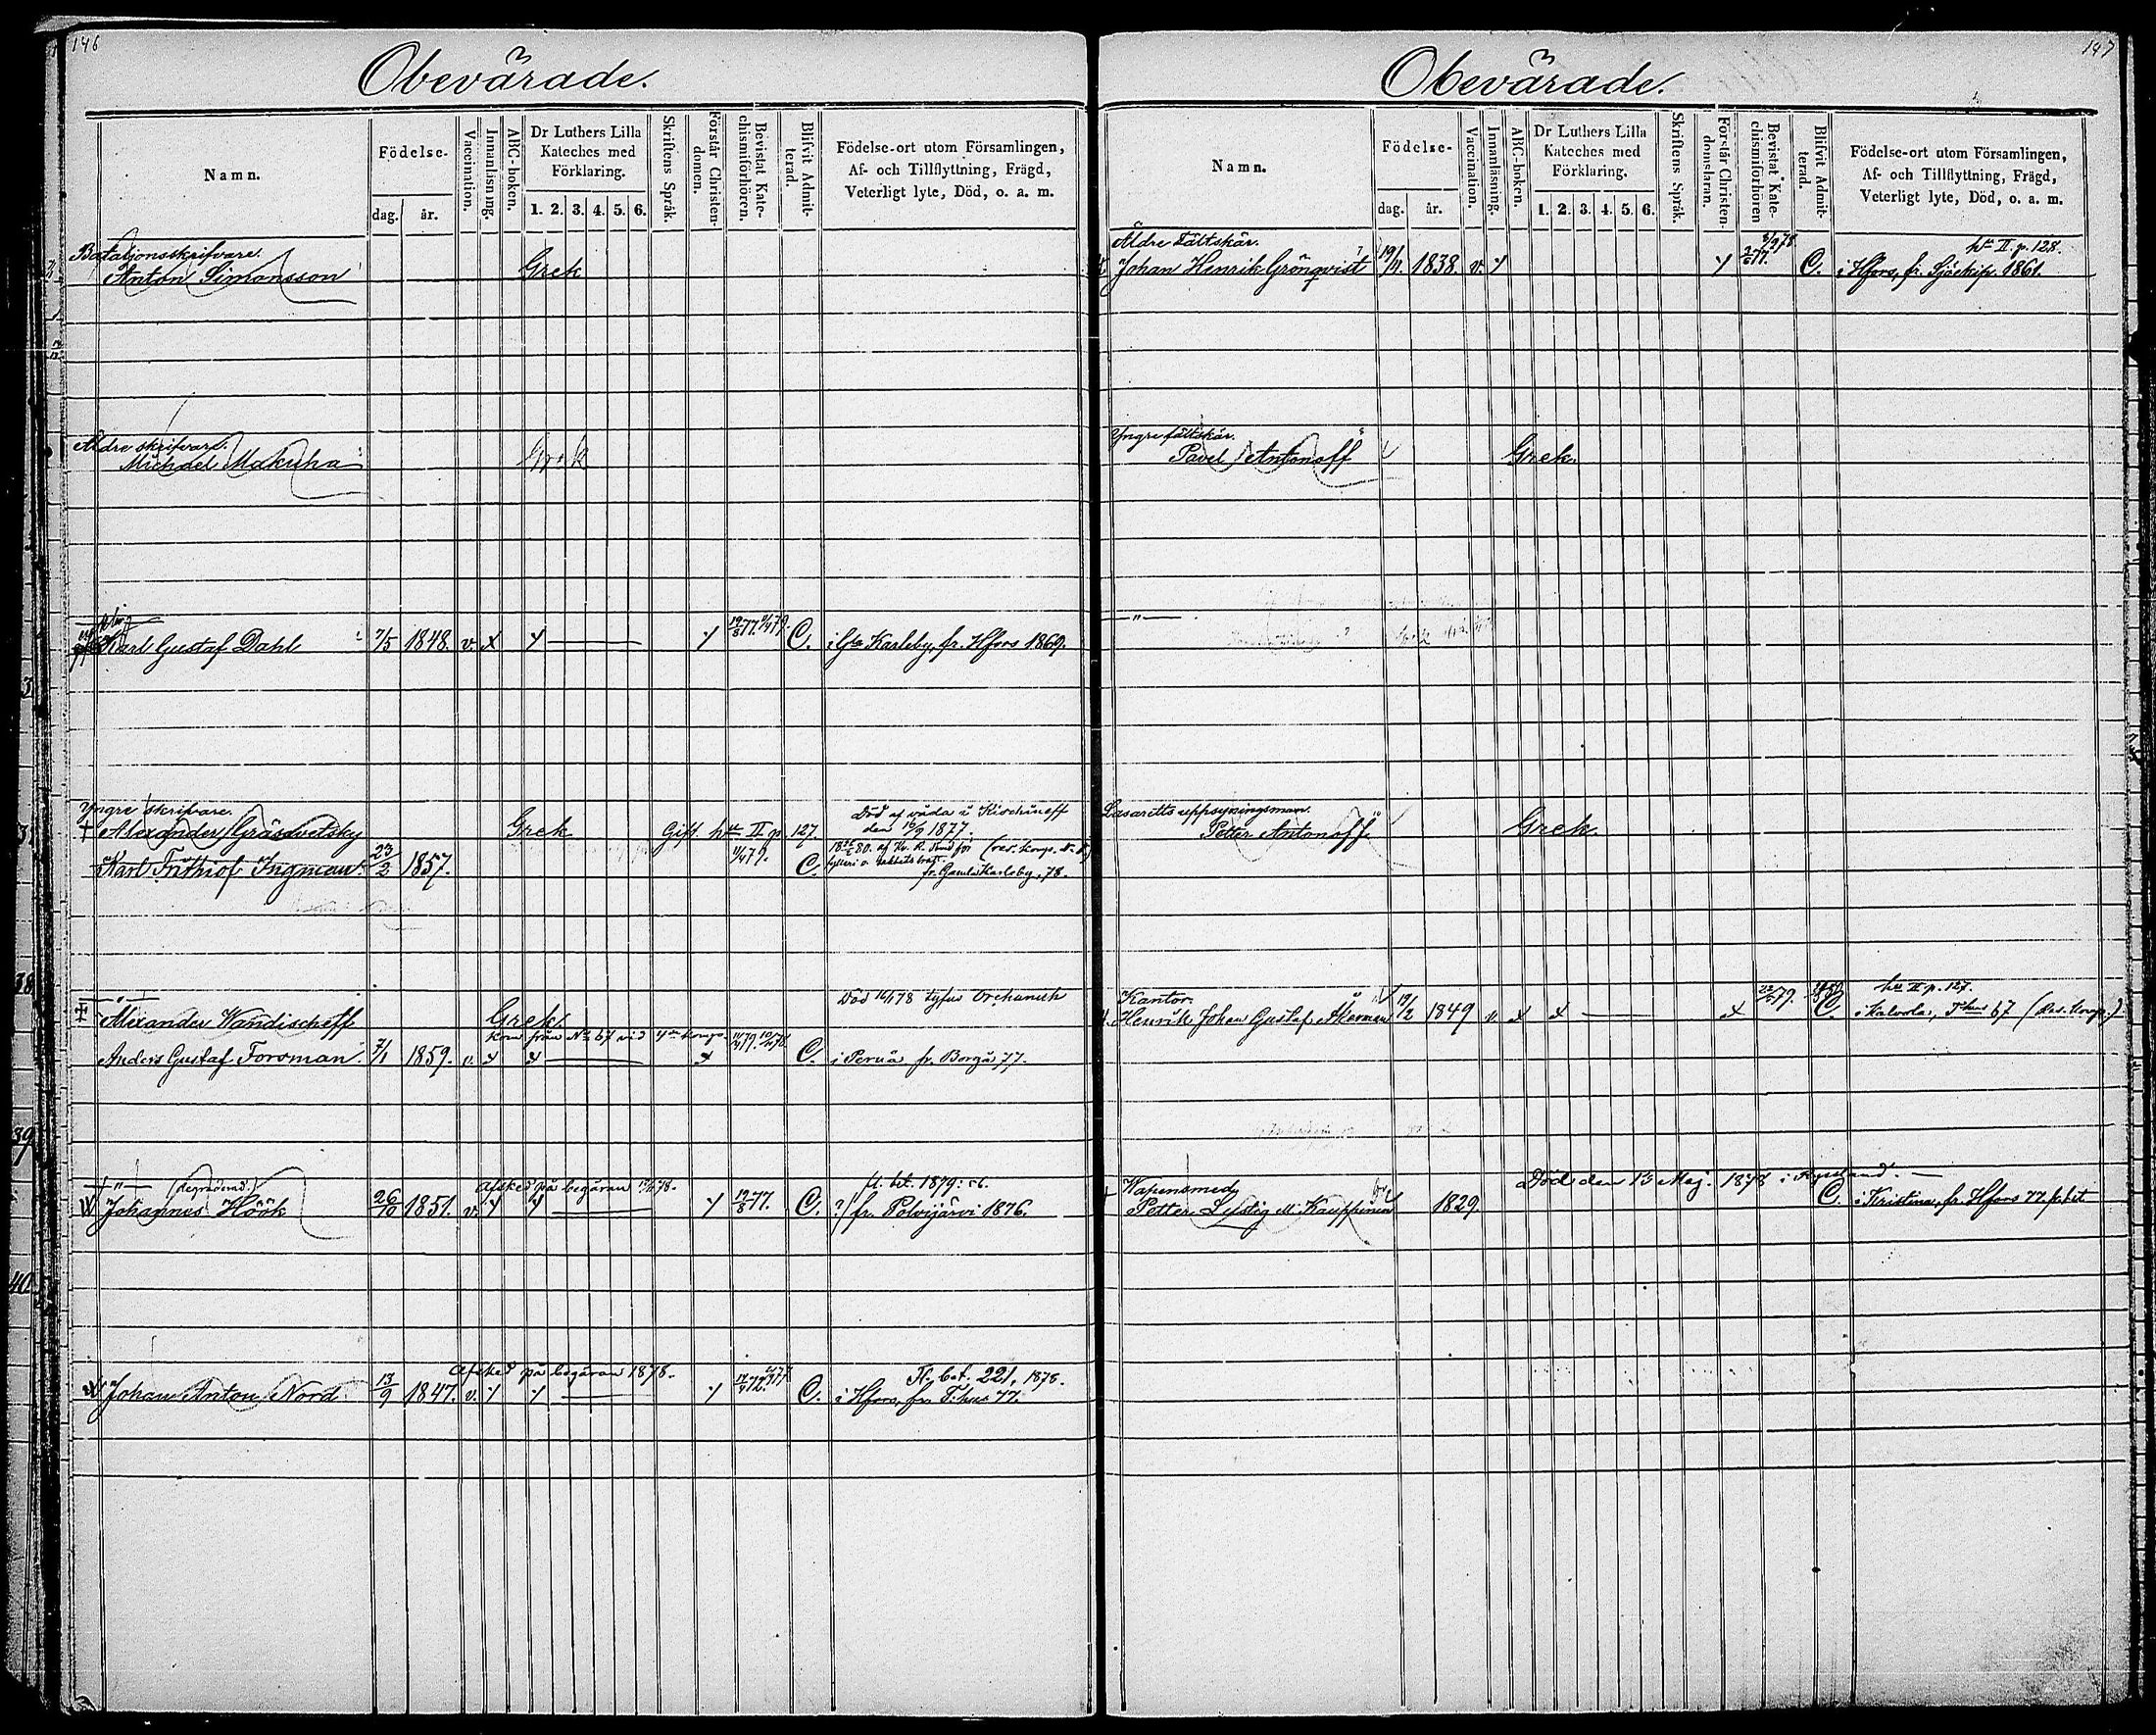 146
Obevärade.
Namn.
Födelse-
dag. år.
Vaccination.
Innanläsning.
ABC-boken.
Dr Luthers Lilla Kateches med Förklaring.
1. 2. 3. 4. 5. 6.
Skriftens Språk.
Förstår Christendomen.
Bevistat Katechismiförhören.
Blifvit Admitterad.
Födelse-ort utom Församlingen,
Af- och Tillflyttning, Frägd,
Veterligt lyte, Död, o. a. m.
Bataljonsskrifvare.
Anton Simonsson Grek
Äldre skrifvare.
Michael Makuha Grek
Karl Gustaf Dahl 7/5 1848. v. x y y 19/8 77. C. i Gla Karleby, fr. Hfors 1869.
Yngre skrifvare. Död af våda i Kischineff
† Alexander Gräsdvetsky Grek Gift. II p. 127. den 16/9 1877.
Karl Frithiof Ingman. 23/2 1857. C. fr. Gamla Karleby, 78.
— " — Död 16/1 78 tyfus Orchanieh
Alexander Wandischeff Grek.
kom från No 67 vid komp.
Anders Gustaf Forsman. 7/1 1859. v. x x x C. i Pernå fr. Borgå 77.
— " — (degraderad.) Afsked på begäran fl. bet. 1879: 56.
Johannes Höök 26/10 1851. v. y y y 19/8 77. C. ?/ fr. Polvijärvi 1876.
Afsked på begäran 1878. Fl. bet. 221, 1878.
Johan Anton Nord. 13/9 1847. v. y y y C. i Hfors, fr. T.hus 77.
147
Obevärade.
Namn.
Födelse-
dag. år.
Vaccination.
Innanläsning.
ABC-boken.
Dr Luthers Lilla Kateches med Förklaring.
1. 2. 3. 4. 5. 6.
Skriftens Språk.
Förstår Christendomsläran.
Bevistat Katechismiförhören
Blifvit Admitterad.
Födelse-ort utom Församlingen,
Af- och Tillflyttning, Frägd,
Veterligt lyte, Död, o. a. m.
Äldre Fältskär. II. p. 128.
Johan Henrik Grönqvist 1838. v. y y C. i Hfors, fr. Sjöekip. 1861.
Yngre fältskär.
Pavel Antonoff Grek.
— " —
Lasaretts uppsyningsman.
Petter Antonoff. Grek.
Kantor. II p. 127.
Henrik Johan Gustaf Åkerman 19/2 1849 v. x x x C. i Kalvola, T.hus 67 (Res. Komp.)
Wapensmed Död den 15 Maj. 1878 i Ryssland.
† Petter Lystig Kauppinen 1829 C. i Kristina, fr. Hfors 77